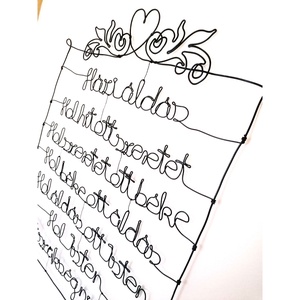 Házi áldás
Hol hit ott szeretet
Hol szeretet ott béke
Hol béke ott áldás
Hol áldás ott Isten
Hol Isten